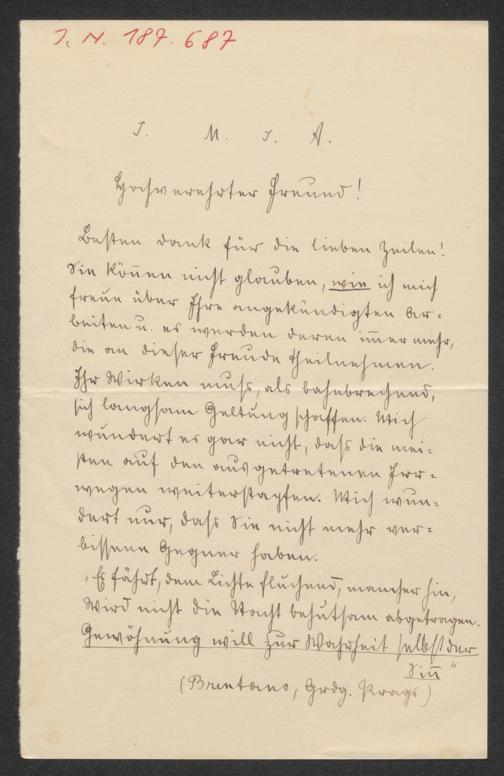 I. N. 187.687
I. M. I. A.
Hochverehrter Freund!
Besten Dank für die lieben Zeilen!
Sie können nicht glauben, wie ich mich
freue über Ihre angekündigten Ar-
beiten u. es werden deren im̅er mehr,
die an dieser Freude theilnehmen.
Ihr Wirken muss, als bahnbrechend,
sich langsam Geltung schaffen. Mich
wundert es gar nicht, dass die mei-
sten auf den ausgetretenen Irr-
wegen weiterstapfen. Mich wun-
dert nur, dass Sie nicht mehr ver-
bissene Gegner haben.
„Es fährt, dem Lichte fluchend, mancher hin,
Wird nicht die Nacht behutsam abgetragen.
Gewöhnung will zur Wahrheit selbst der
Sin̅"
(Brentano, Grdg. Prags)